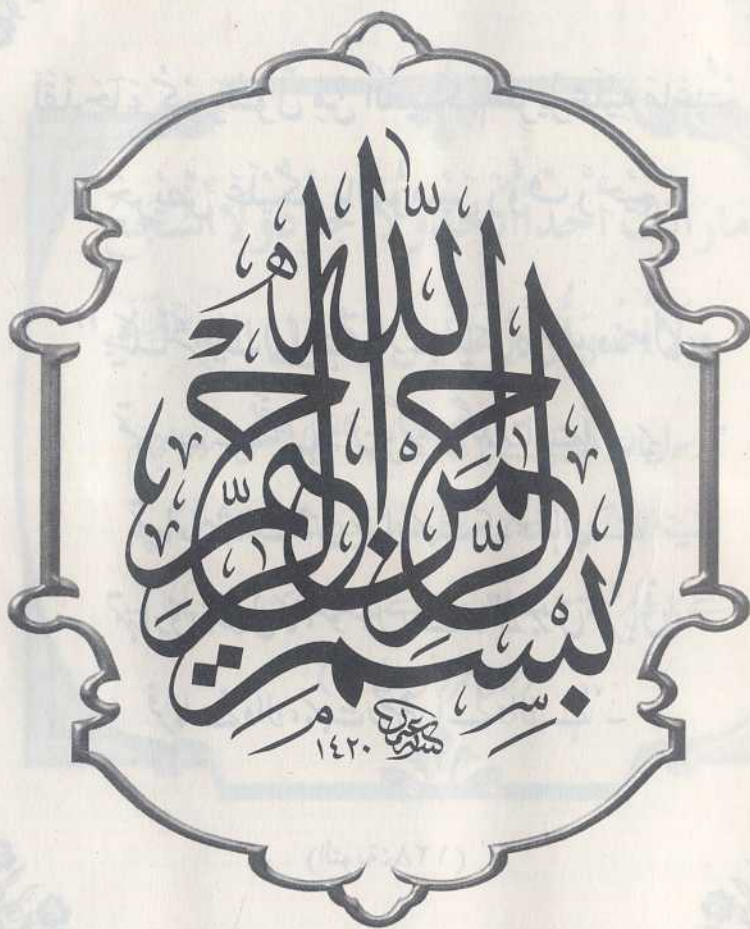 بِسْمِ اللَّهِ الرَّحْمَنِ الرَّحِيمِ
١٤٢٠